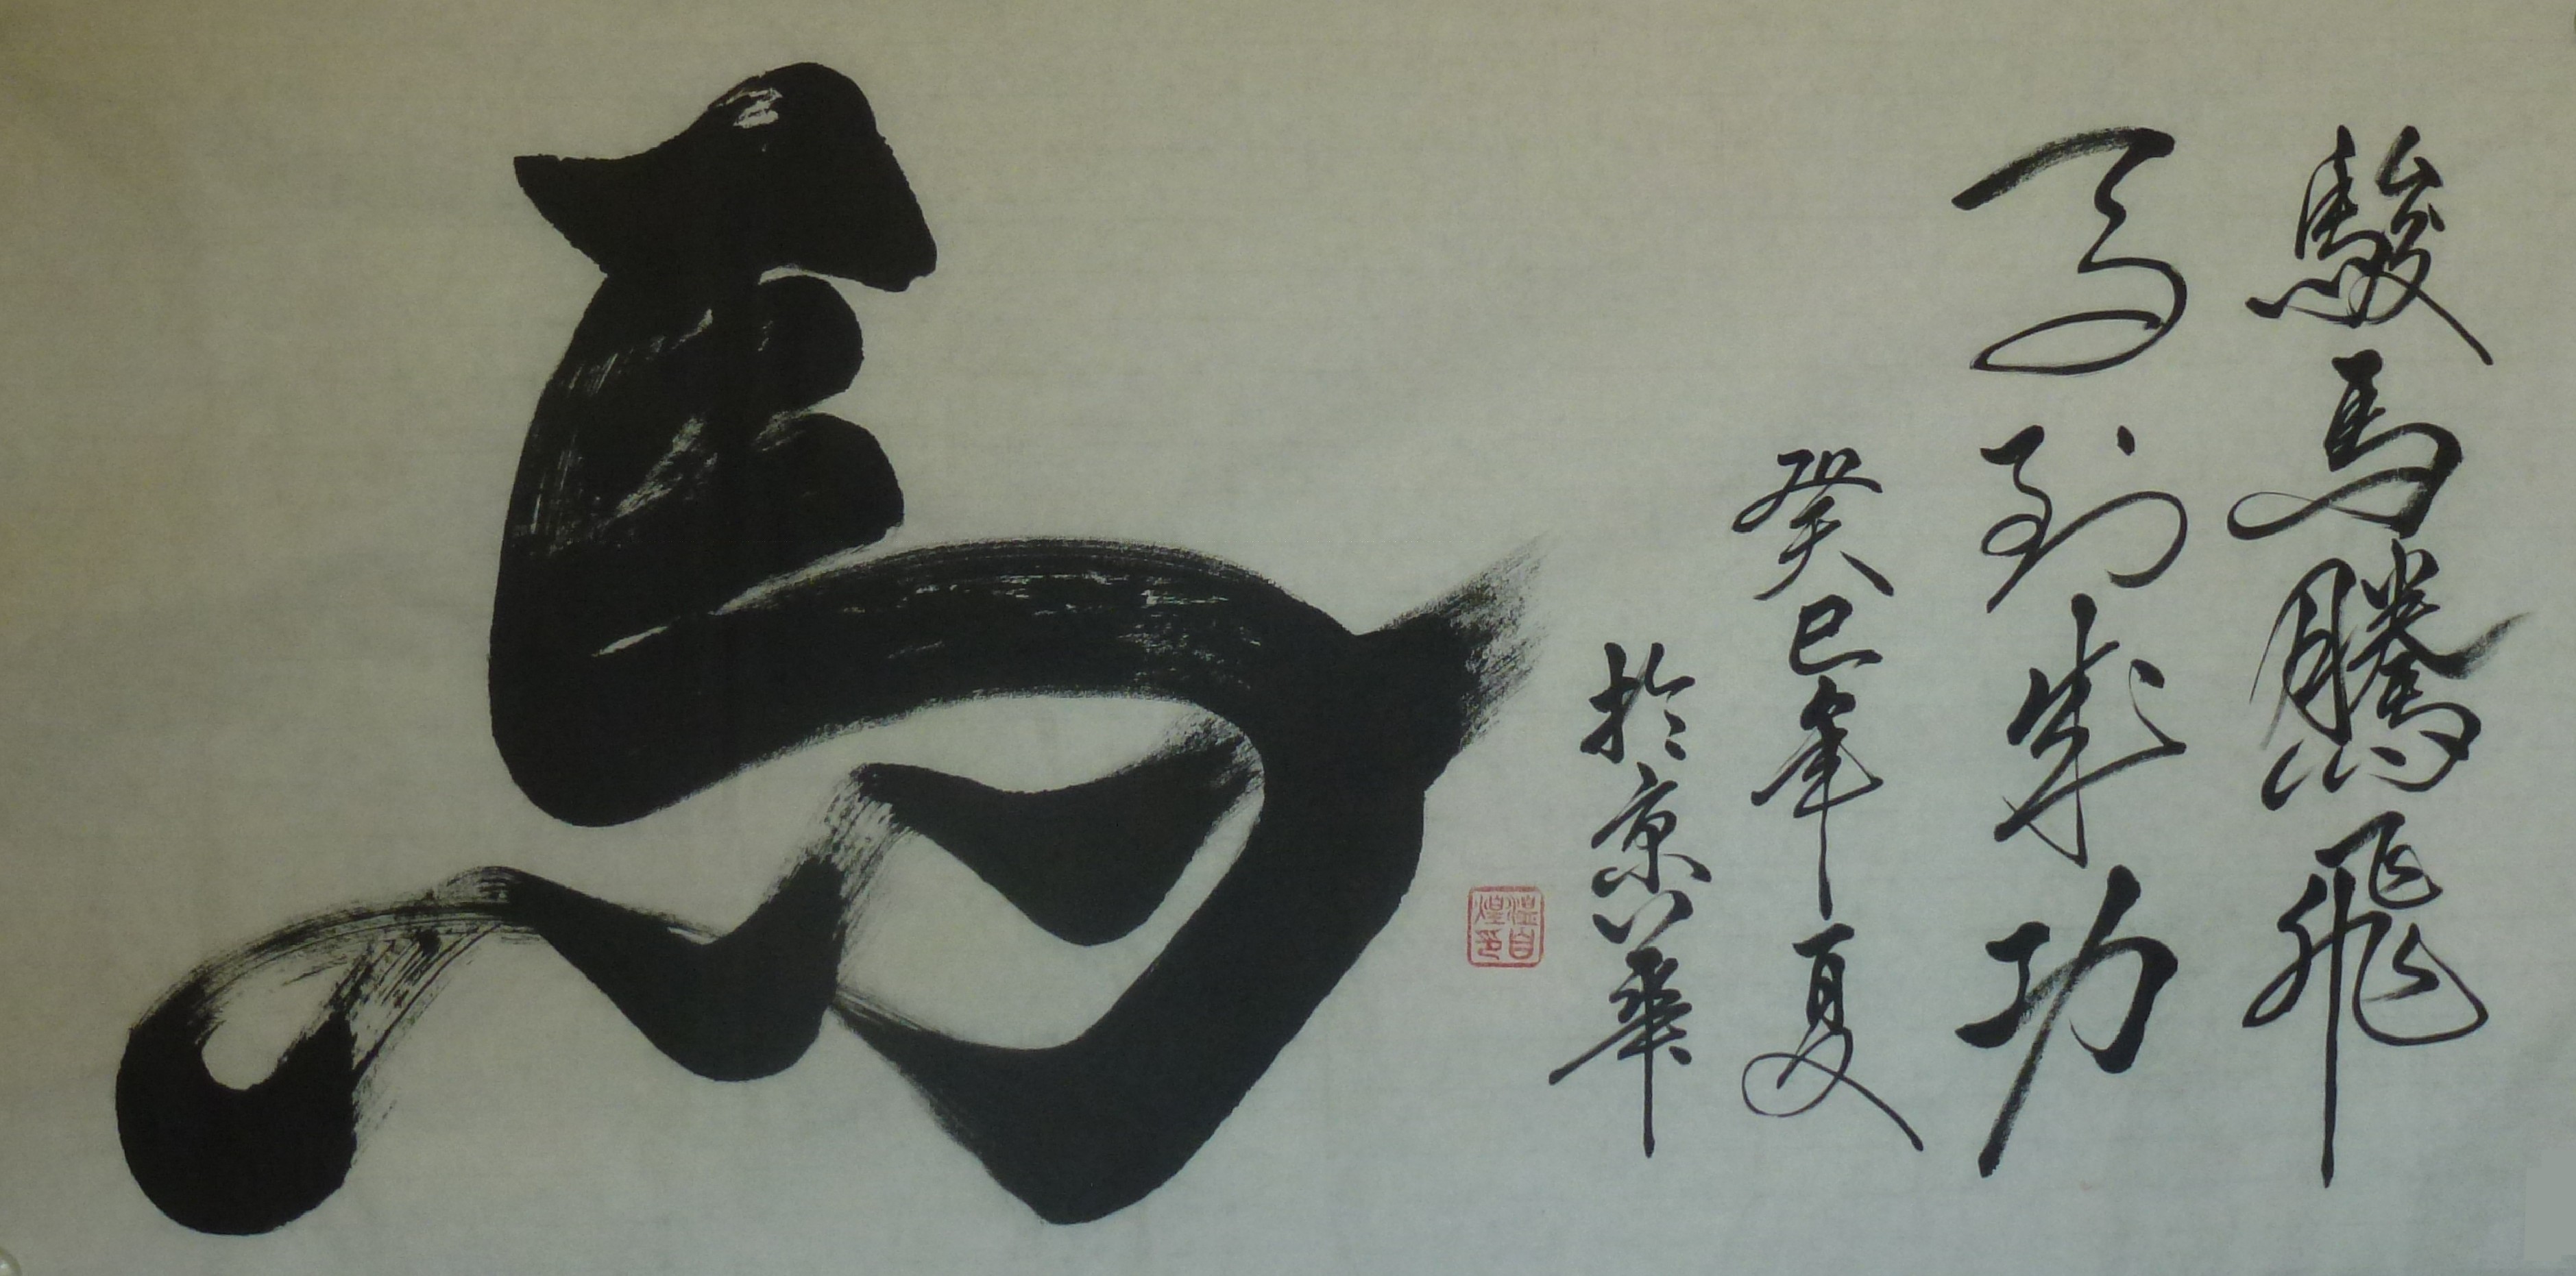 駿馬騰飛
馬到成功
癸巳年夏
於京華
馬